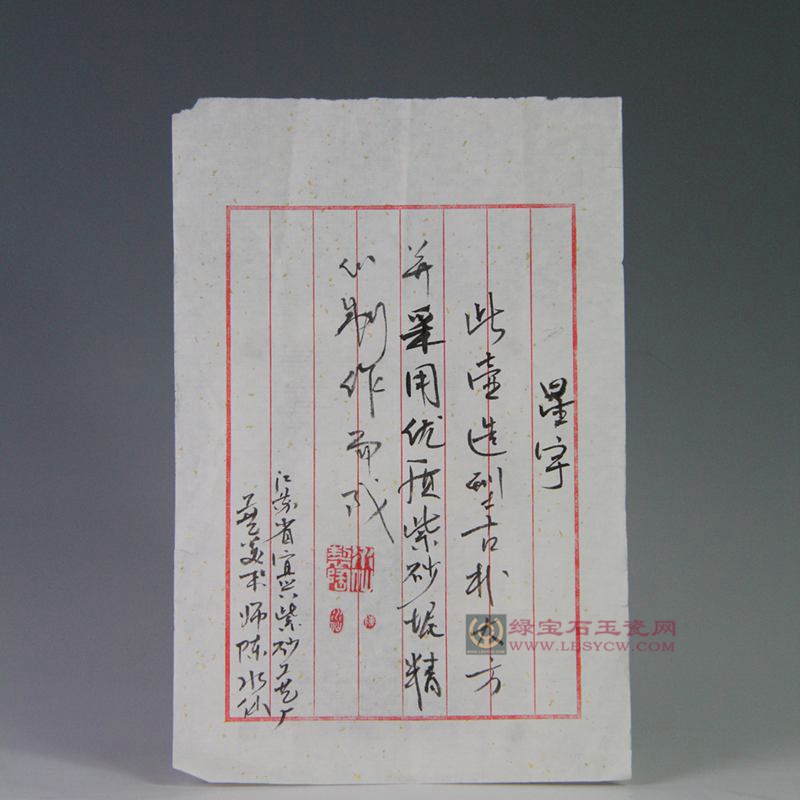 星宇
此壶造型古朴大方
并采用优质紫砂坭精
心制作而成
江苏省宜兴紫砂工艺厂
工艺美术师陈水仙
水仙
製陶
绿宝石玉瓷网
WWW.LBSYCW.COM